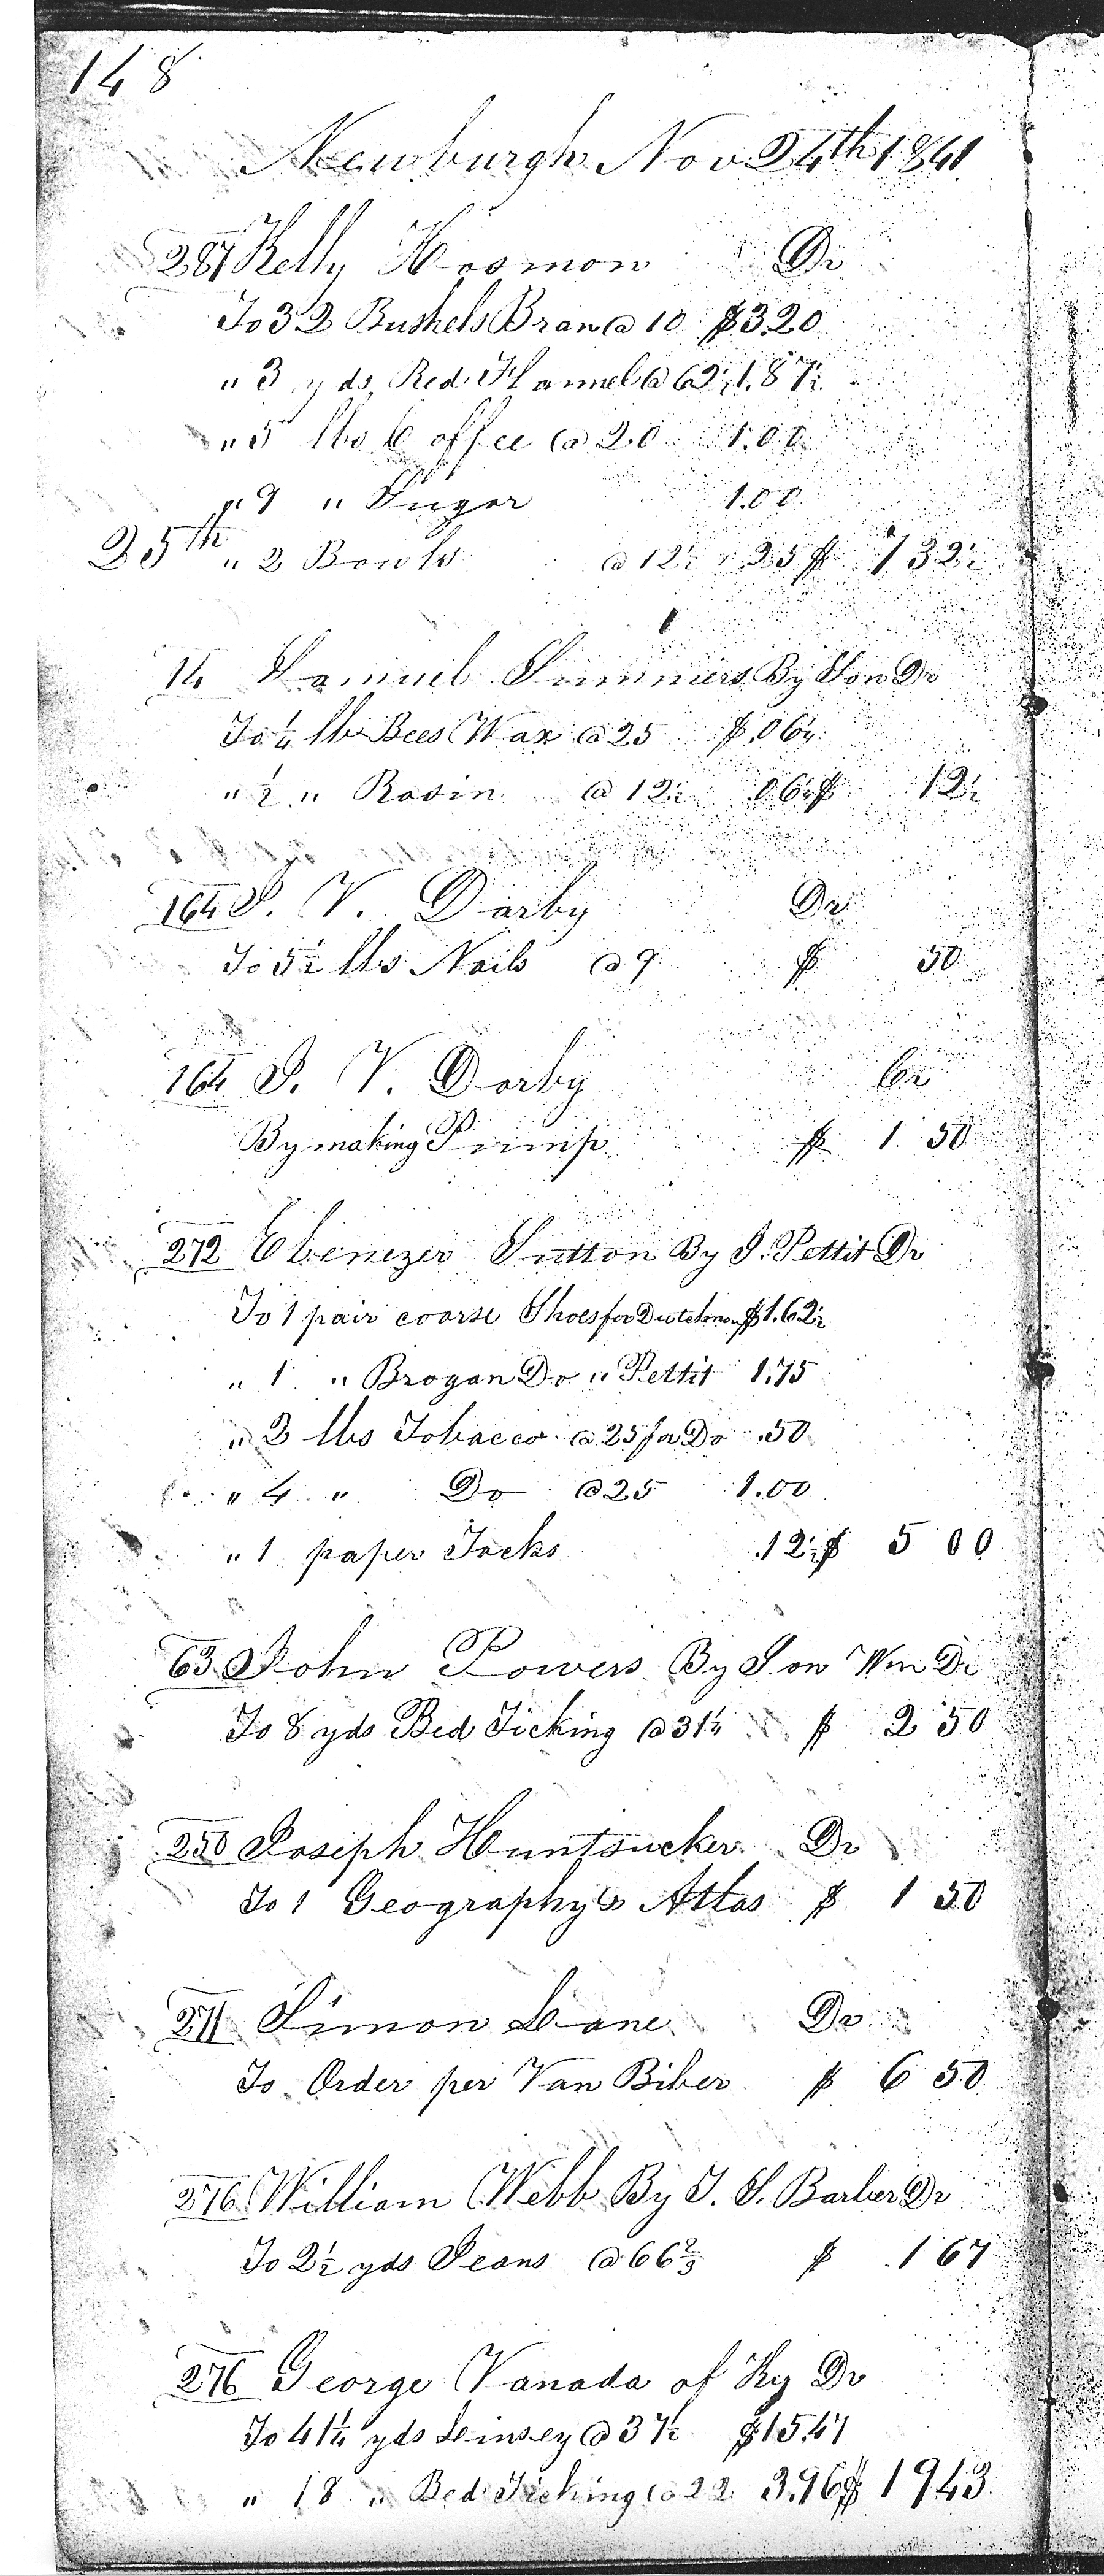 148
Newburgh Nov 24th 1841
287 Kelly Hosmon Dr
To 32 Bushels Bran @ 10 $3.20
" 3 yds Red Flannel @ 62½ 1.87½
" 5 lbs Coffee @ 20 1.00
" 9 " Sugar 1.00
25th " 2 Bowls @ 12½ .25 $ 7 32½
14 Samuel Summers By Son Dr
To ¼ lb Bees Wax @ 25 $.06¼
" ½ " Rosin @ 12½ .06¼ $ 12½
164 J. V. Darby Dr
To 5½ lbs Nails @ 9 $ 50
164 J. V. Darby Cr
By making Pump $ 1 50
272 Ebenezer Sutton By J. Pettit Dr
To 1 pair coarse Shoes for Dutchman $1.62½
" 1 " Brogan Do " Pettit 1.75
" 2 lbs Tobacco @ 25 for Do .50
" 4 " Do @ 25 1.00
" 1 paper Tacks .12½ $ 5 00
63 John Powers By Son Wm Dr
To 8 yds Bed Ticking @ 31¼ $ 2 50
250 Joseph Huntsucker Dr
To 1 Geography & Atlas $ 1 50
271 Simon Lane Dr
To Order per Van Biber $ 6 50
276 William Webb By J. S. Barber Dr
To 2½ yds Jeans @ 66⅔ $ 1 67
276 George Vanada of Ky Dr
To 41¼ yds Linsey @ 37½ $15.47
" 18 " Bed Ticking @ 22 3.96 $ 19 43